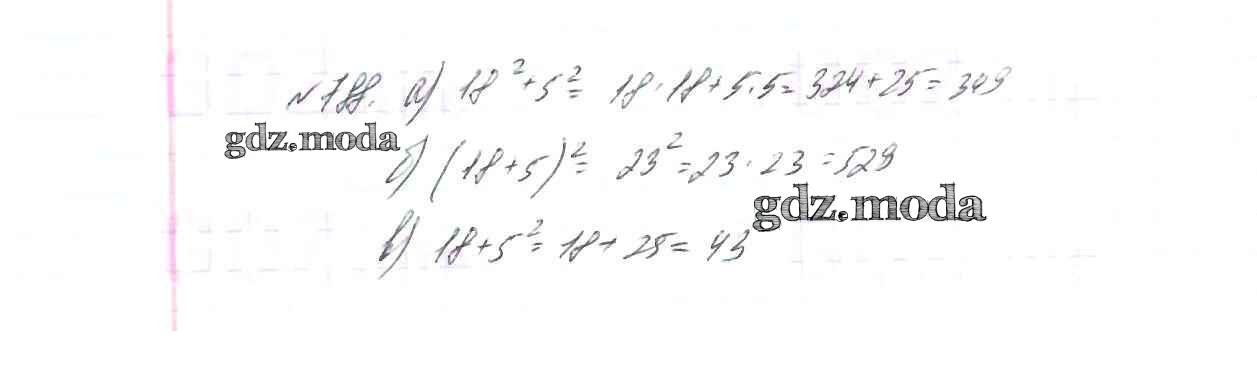 №188. а) 18²+5²= 18·18+5·5=324+25=349
gdz.moda
б) (18+5)²= 23²=23·23=529
gdz.moda
в) 18+5²=18+25=43